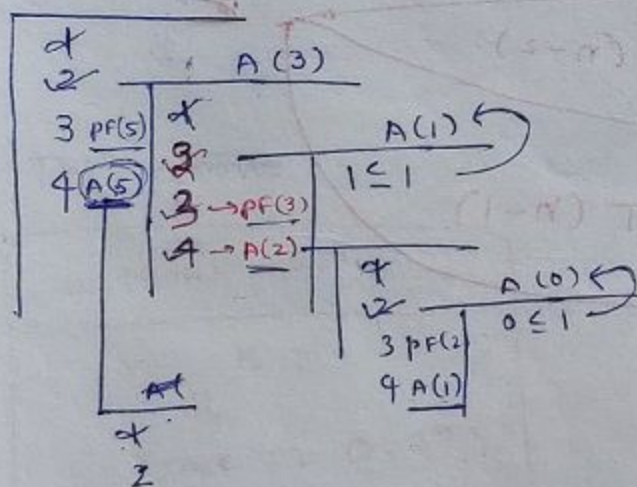 1
2 A(3)
3 PF(5) 1
A(1)
2
4 A(5) 1 ≤ 1
3 → PF(3)
4 → A(2)
1
A(0)
2
0 ≤ 1
3 PF(2
4 A(1)
1
2